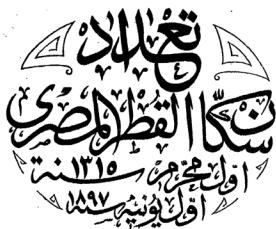 تعداد
سكان القطر المصرى
اول محرم سنة ١٣١٥
اول يونيه سنة ١٨٩٧